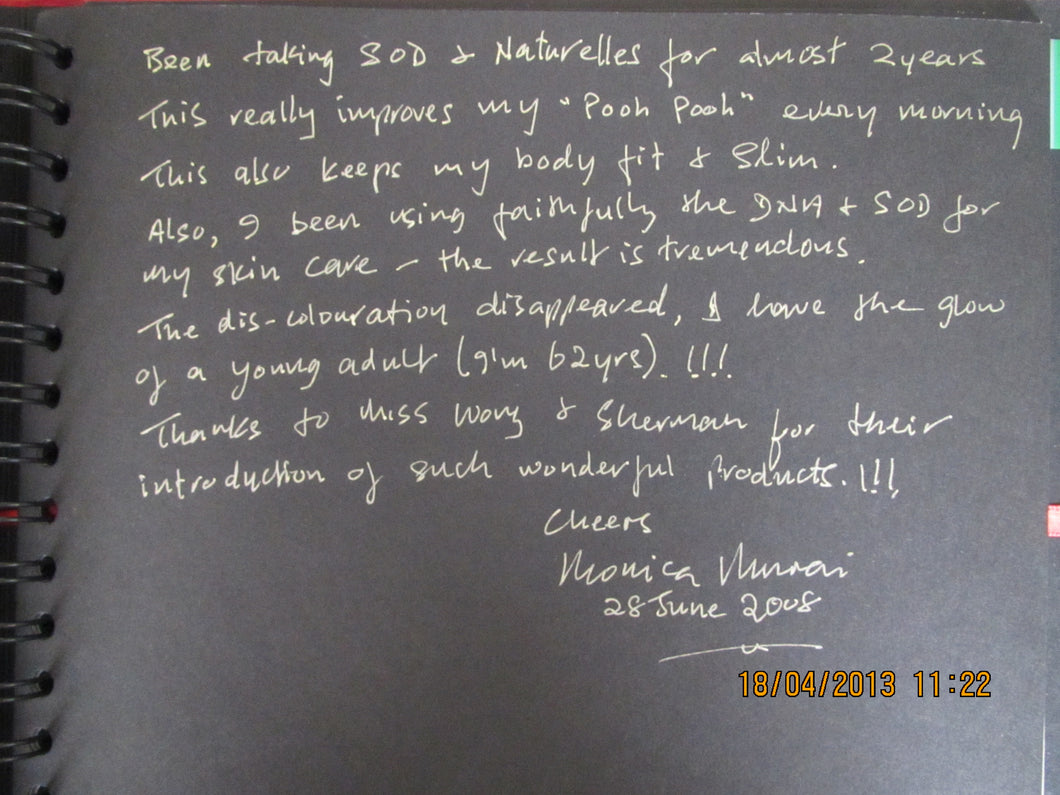 Been taking SOD & Naturelles for almost 2 years
This really improves my "Pooh Pooh" every morning
This also keeps my body fit & slim.
Also, I been using faithfully the DNA & SOD for
my skin care – the result is tremendous.
The dis-colouration disappeared, I have the glow
of a young adult (I'm 62yrs). !!!
Thanks to Miss Wong & Sherman for their
introduction of such wonderful products. !!!
Cheers
Monica Murai
28 June 2008
18/04/2013 11:22